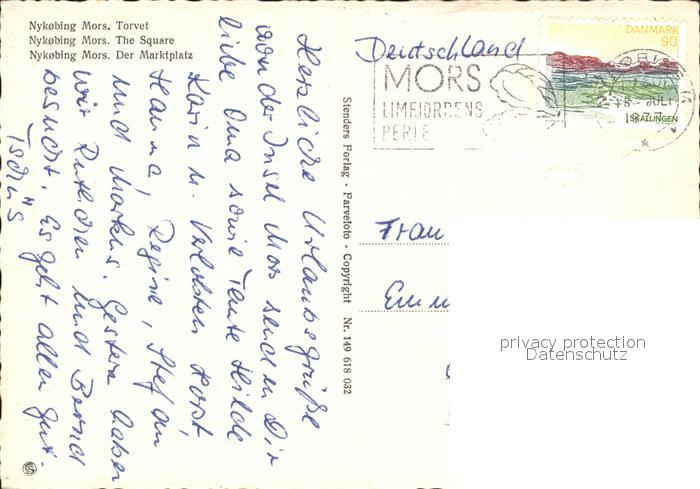 Nykøbing Mors. Torvet
Nykøbing Mors. The Square
Nykøbing Mors. Der Marktplatz
Herzliche Urlaubsgrüße
von der Insel Mors senden Dir
liebe Oma sowie Tante Hilde
Karin u. Horst
Hanna, Regine, Stefan
und Markus. Gestern haben
wir Ruthchen und Bernd
besucht. Es geht allen gut.
Tschüs
Stenders Forlag - Farvefoto - Copyright Nr. 149 618 032
Deutschland
MORS
LIMFJORDENS
PERLE
DANMARK
90
SKALLINGEN
Frau
privacy protection
Datenschutz